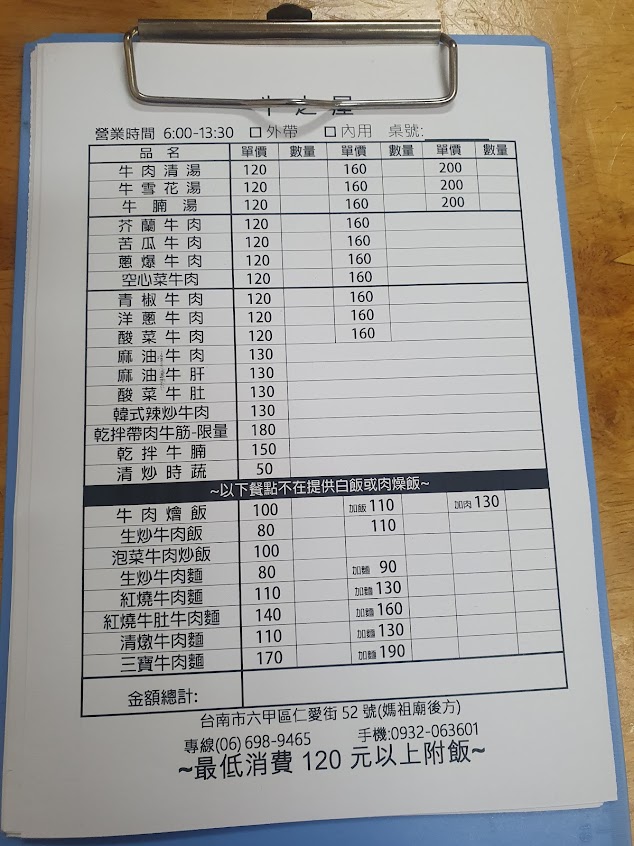 營業時間 6:00-13:30 □外帶 □內用 桌號:
品名 單價 數量 單價 數量 單價 數量
牛肉清湯 120 160 200
牛雪花湯 120 160 200
牛腩湯 120 160 200
芥蘭牛肉 120 160
苦瓜牛肉 120 160
蔥爆牛肉 120 160
空心菜牛肉 120 160
青椒牛肉 120 160
洋蔥牛肉 120 160
酸菜牛肉 120 160
麻油牛肉 130
麻油牛肝 130
酸菜牛肚 130
韓式辣炒牛肉 130
乾拌帶肉牛筋-限量 180
乾拌牛腩 150
清炒時蔬 50
~以下餐點不在提供白飯或肉燥飯~
牛肉燴飯 100 加飯 110 加肉 130
生炒牛肉飯 80 110
泡菜牛肉炒飯 100
生炒牛肉麵 80 加麵 90
紅燒牛肉麵 110 加麵 130
紅燒牛肚牛肉麵 140 加麵 160
清燉牛肉麵 110 加麵 130
三寶牛肉麵 170 加麵 190
金額總計:
台南市六甲區仁愛街 52 號(媽祖廟後方)
專線(06) 698-9465 手機:0932-063601
~最低消費 120 元以上附飯~